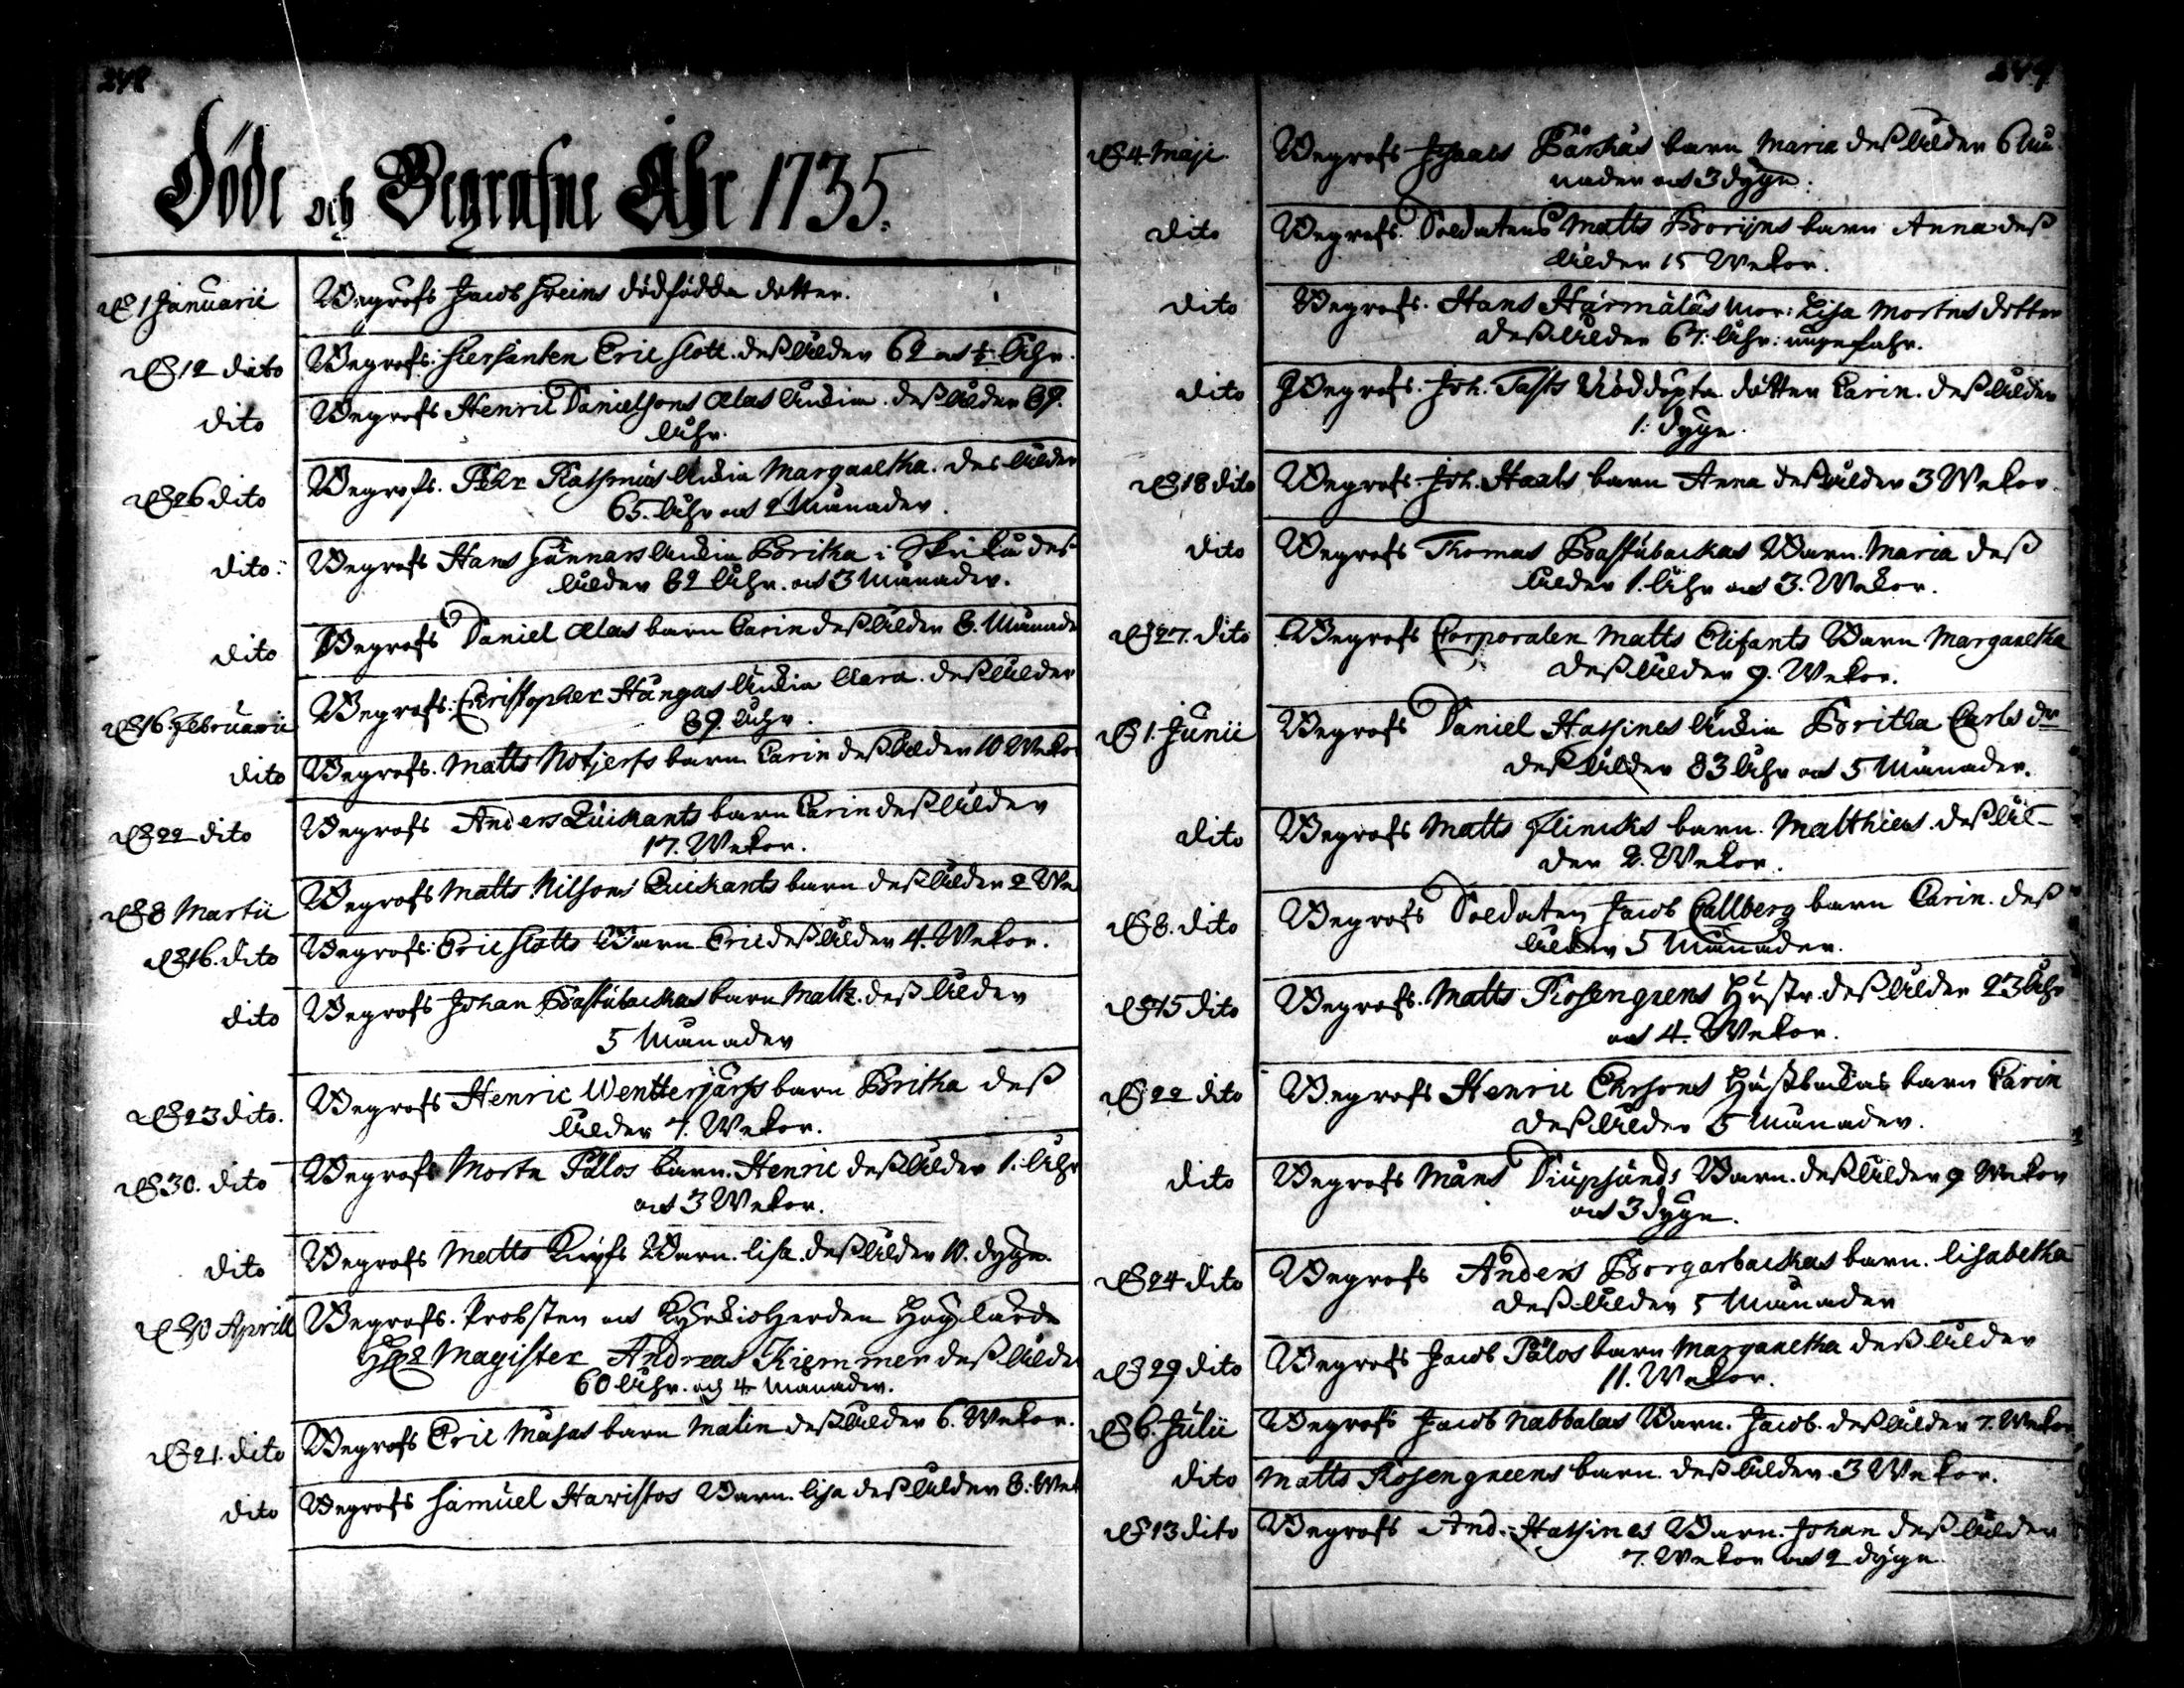 248
Döde och Begrafne Åhr 1735.
D. 1 Januarii Begrofs Jacob Hreins dödfödda dotter.
D. 12 dito Begrofs: Siersanten Eric Slott. deß ålder 62 och ½ Åhr.
dito Begrofs Henric Danielsons Alas änkia. deß ålder 89.
Åhr.
D. 26 dito Begrofs. Pehr Rasmus änkia Margaretha. des ålder
65. Åhr och 2 Månader.
dito: Begrofs Hans Gunnars änkia Britha i Skriku des
ålder 82 Åhr. och 3 Månader.
dito Begrofs Daniel Alas barn Carin deß ålder 8. Månade
D. 16. Februarii Begrofs: Christopher Hångas änkia Clara. deß ålder
89. Åhr.
dito Begrofs. Matts Notjerfs barn Carin deß ålder 10 Wekor
D. 22 dito Begrofs Anders Quickants barn Carin deß ålder
17. Wekor.
D. 8 Martii Begrofs Matts Nilsons Quickants barn deß ålder 2 We
D. 16. dito Begrofs: Eric Slotts Barn Eric deß ålder 4. Wekor.
dito Begrofs Johan Bastubackas barn Matts. deß ålder
5 Månader
D. 23 dito. Begrofs Henric Wentterjärfs barn Britha deß
ålder 7. Wekor.
D. 30. dito Begrofs Morten Pålos barn. Henric deß ålder 1: Åhr
och 3 Wekor.
dito Begrofs Matts Knifs Barn. Lisa. deß ålder 10. dygn.
D. 20 Aprill Begrofs. Probsten och Kyrkioherden Höglärde
Hr Magister Andreas Kiemmer deß ålde
60 Åhr. och 4 Månader.
D. 21. dito Begrofs Eric Måsas barn Malin deß ålder 6. Wekor.
dito Begrofs Samuel Haristos Barn. Lisa deß ålder 8: Wek
249
D. 4 Maji. Begrofs Isaacs Båskas barn Maria deß ålder 6 Må-
nader och 3 dygn.
dito Begrofs. Soldatens Matts Borijns barn Anna deß
ålder 15 Wekor.
dito Begrofs. Hans Härmälas Mor: Lisa Mortens dotter
deß ålder 67: Åhr: ungefähr.
dito Begrofs. Joh. Tasts Nöddöpta dotter Carin. deß ålder
1: dygn.
D. 18 dito Begrofs. Joh. Haals barn Anna deß ålder 3 Wekor.
dito Begrofs Thomas Bastubackas Barn. Maria deß
ålder 1. Åhr och 3. Wekor.
D. 27. dito Begrofs Corporalen Matts Elifants Barn Margaretha
deß ålder 9. Wekor.
D. 1. Junii Begrofs Daniel Hassines änkia Britha Carls dr
deß ålder 83 Åhr och 5 Månader.
dito Begrofs Matts Flincks barn. Matthies. deß ål-
der 2. Wekor.
D. 8. dito Begrofs Soldaten Jacob Callberg barn Carin. deß
ålder 5 Månader.
D. 15 dito Begrofs. Matts Rosengrens Hustr. deß ålder 23 Åhr
och 4. Wekor.
D. 22 dito Begrofs Henric Ehrsons Hästbackas barn Carin
deß ålder 5 Månader.
dito Begrofs Måns Diupsunds Barn. deß ålder 9 Wekor
och 3 dygn.
D. 24 dito Begrofs Anders Borgarbackas barn. Lisabetha
deß ålder 5 Månader
D. 29 dito Begrofs Jacob Pålos barn Margaretha deß ålder
11. Wekor.
D. 6. Julii Begrofs Jacob Nabbalas Barn. Jacob. deß ålder 7. Wekor
dito Matts Rosengreens barn. deß ålder 3 Wekor.
D. 13 dito Begrofs And: Hassines Barn. Johan deß ålder
7. Wekor och 2 dygn